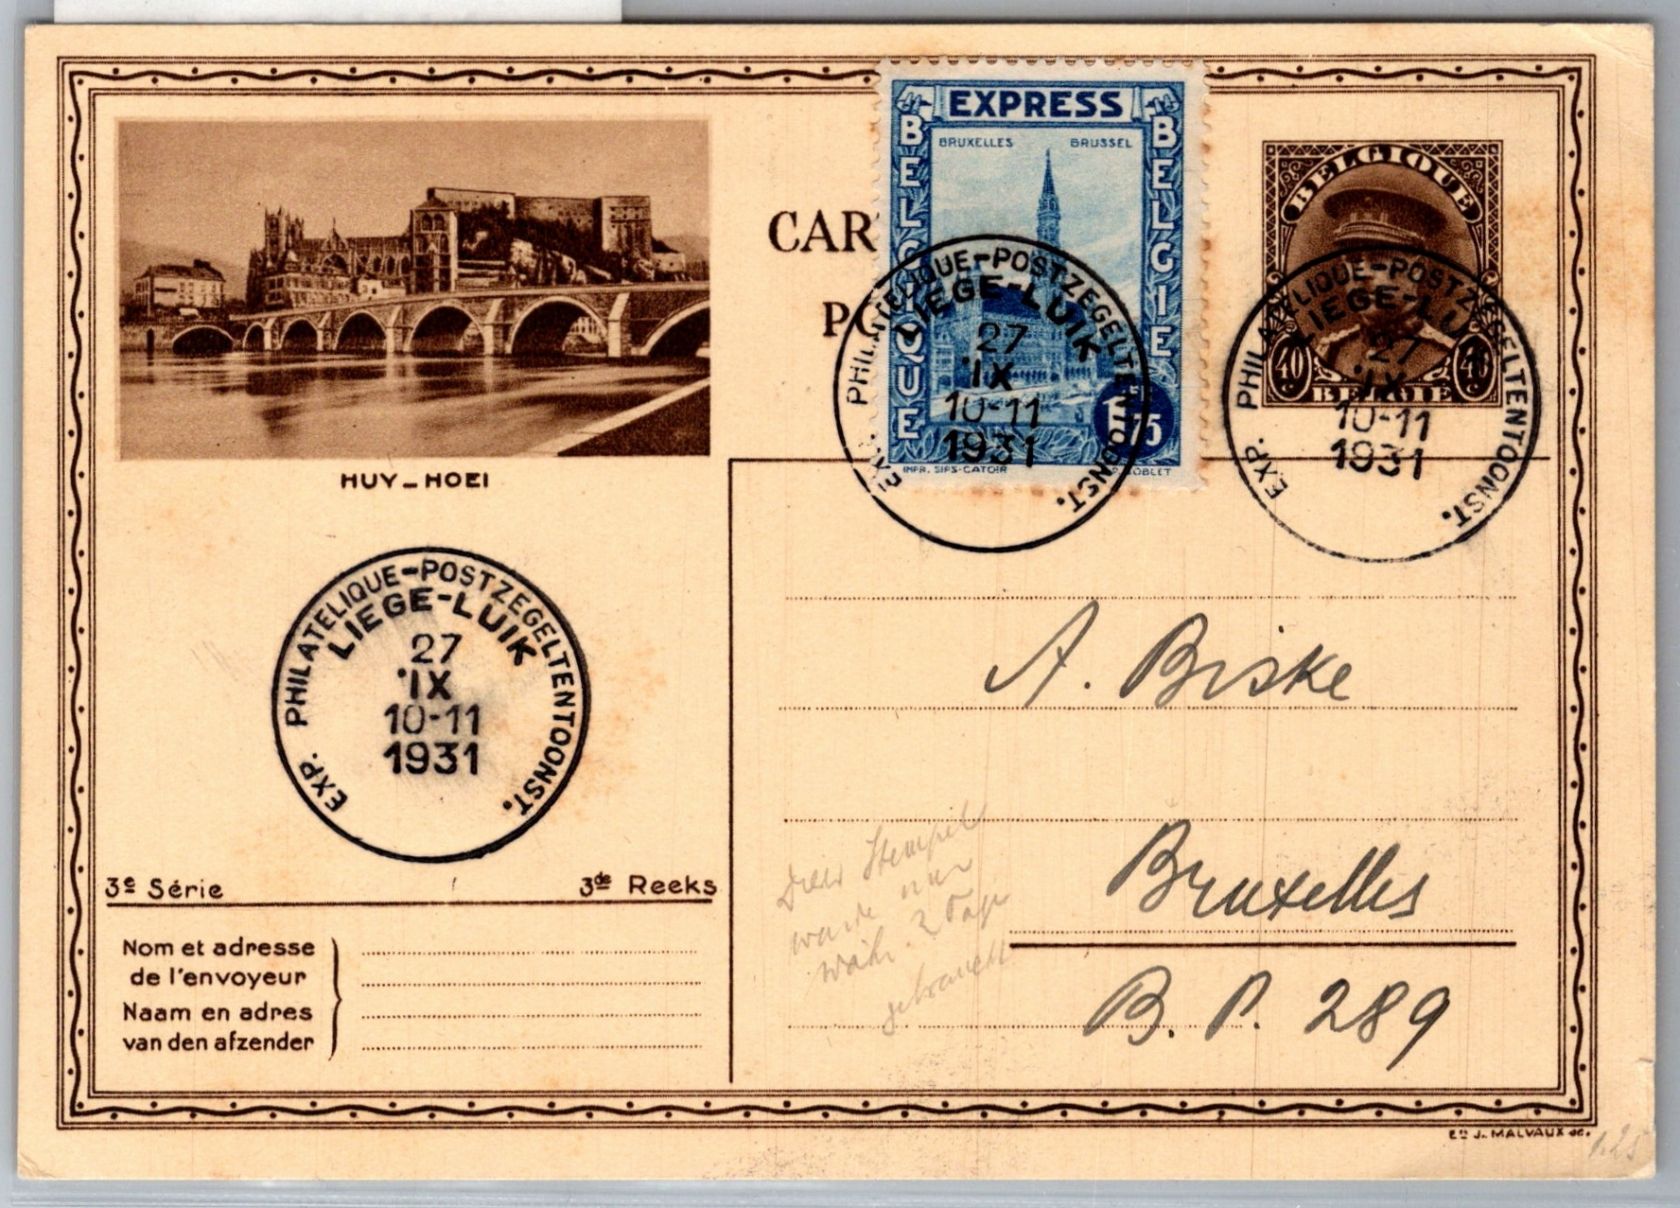 EXPRESS
BRUXELLES BRUSSEL
BELGIQUE
BELGIË
1F75
IMPR. SIPS-CATOIR
BELGIQUE
40 40
BELGIE
CAR
HUY_HOEI
EXP. PHILATELIQUE-POSTZEGELTENTOONST.
LIEGE-LUIK
27
IX
10-11
1931
EXP. PHILATELIQUE-POSTZEGELTENTOONST.
LIEGE-LUIK
27
IX
10-11
1931
EXP. PHILATELIQUE-POSTZEGELTENTOONST.
LIEGE-LUIK
27
IX
10-11
1931
3e Série 3de Reeks
Nom et adresse
de l'envoyeur
Naam en adres
van den afzender
A. Biske
Bruxelles
B. P. 289
Dieser Stempel
wurde nur
währ. 2 Tage
gebraucht
ED J. MALVAUX SC.
1.25